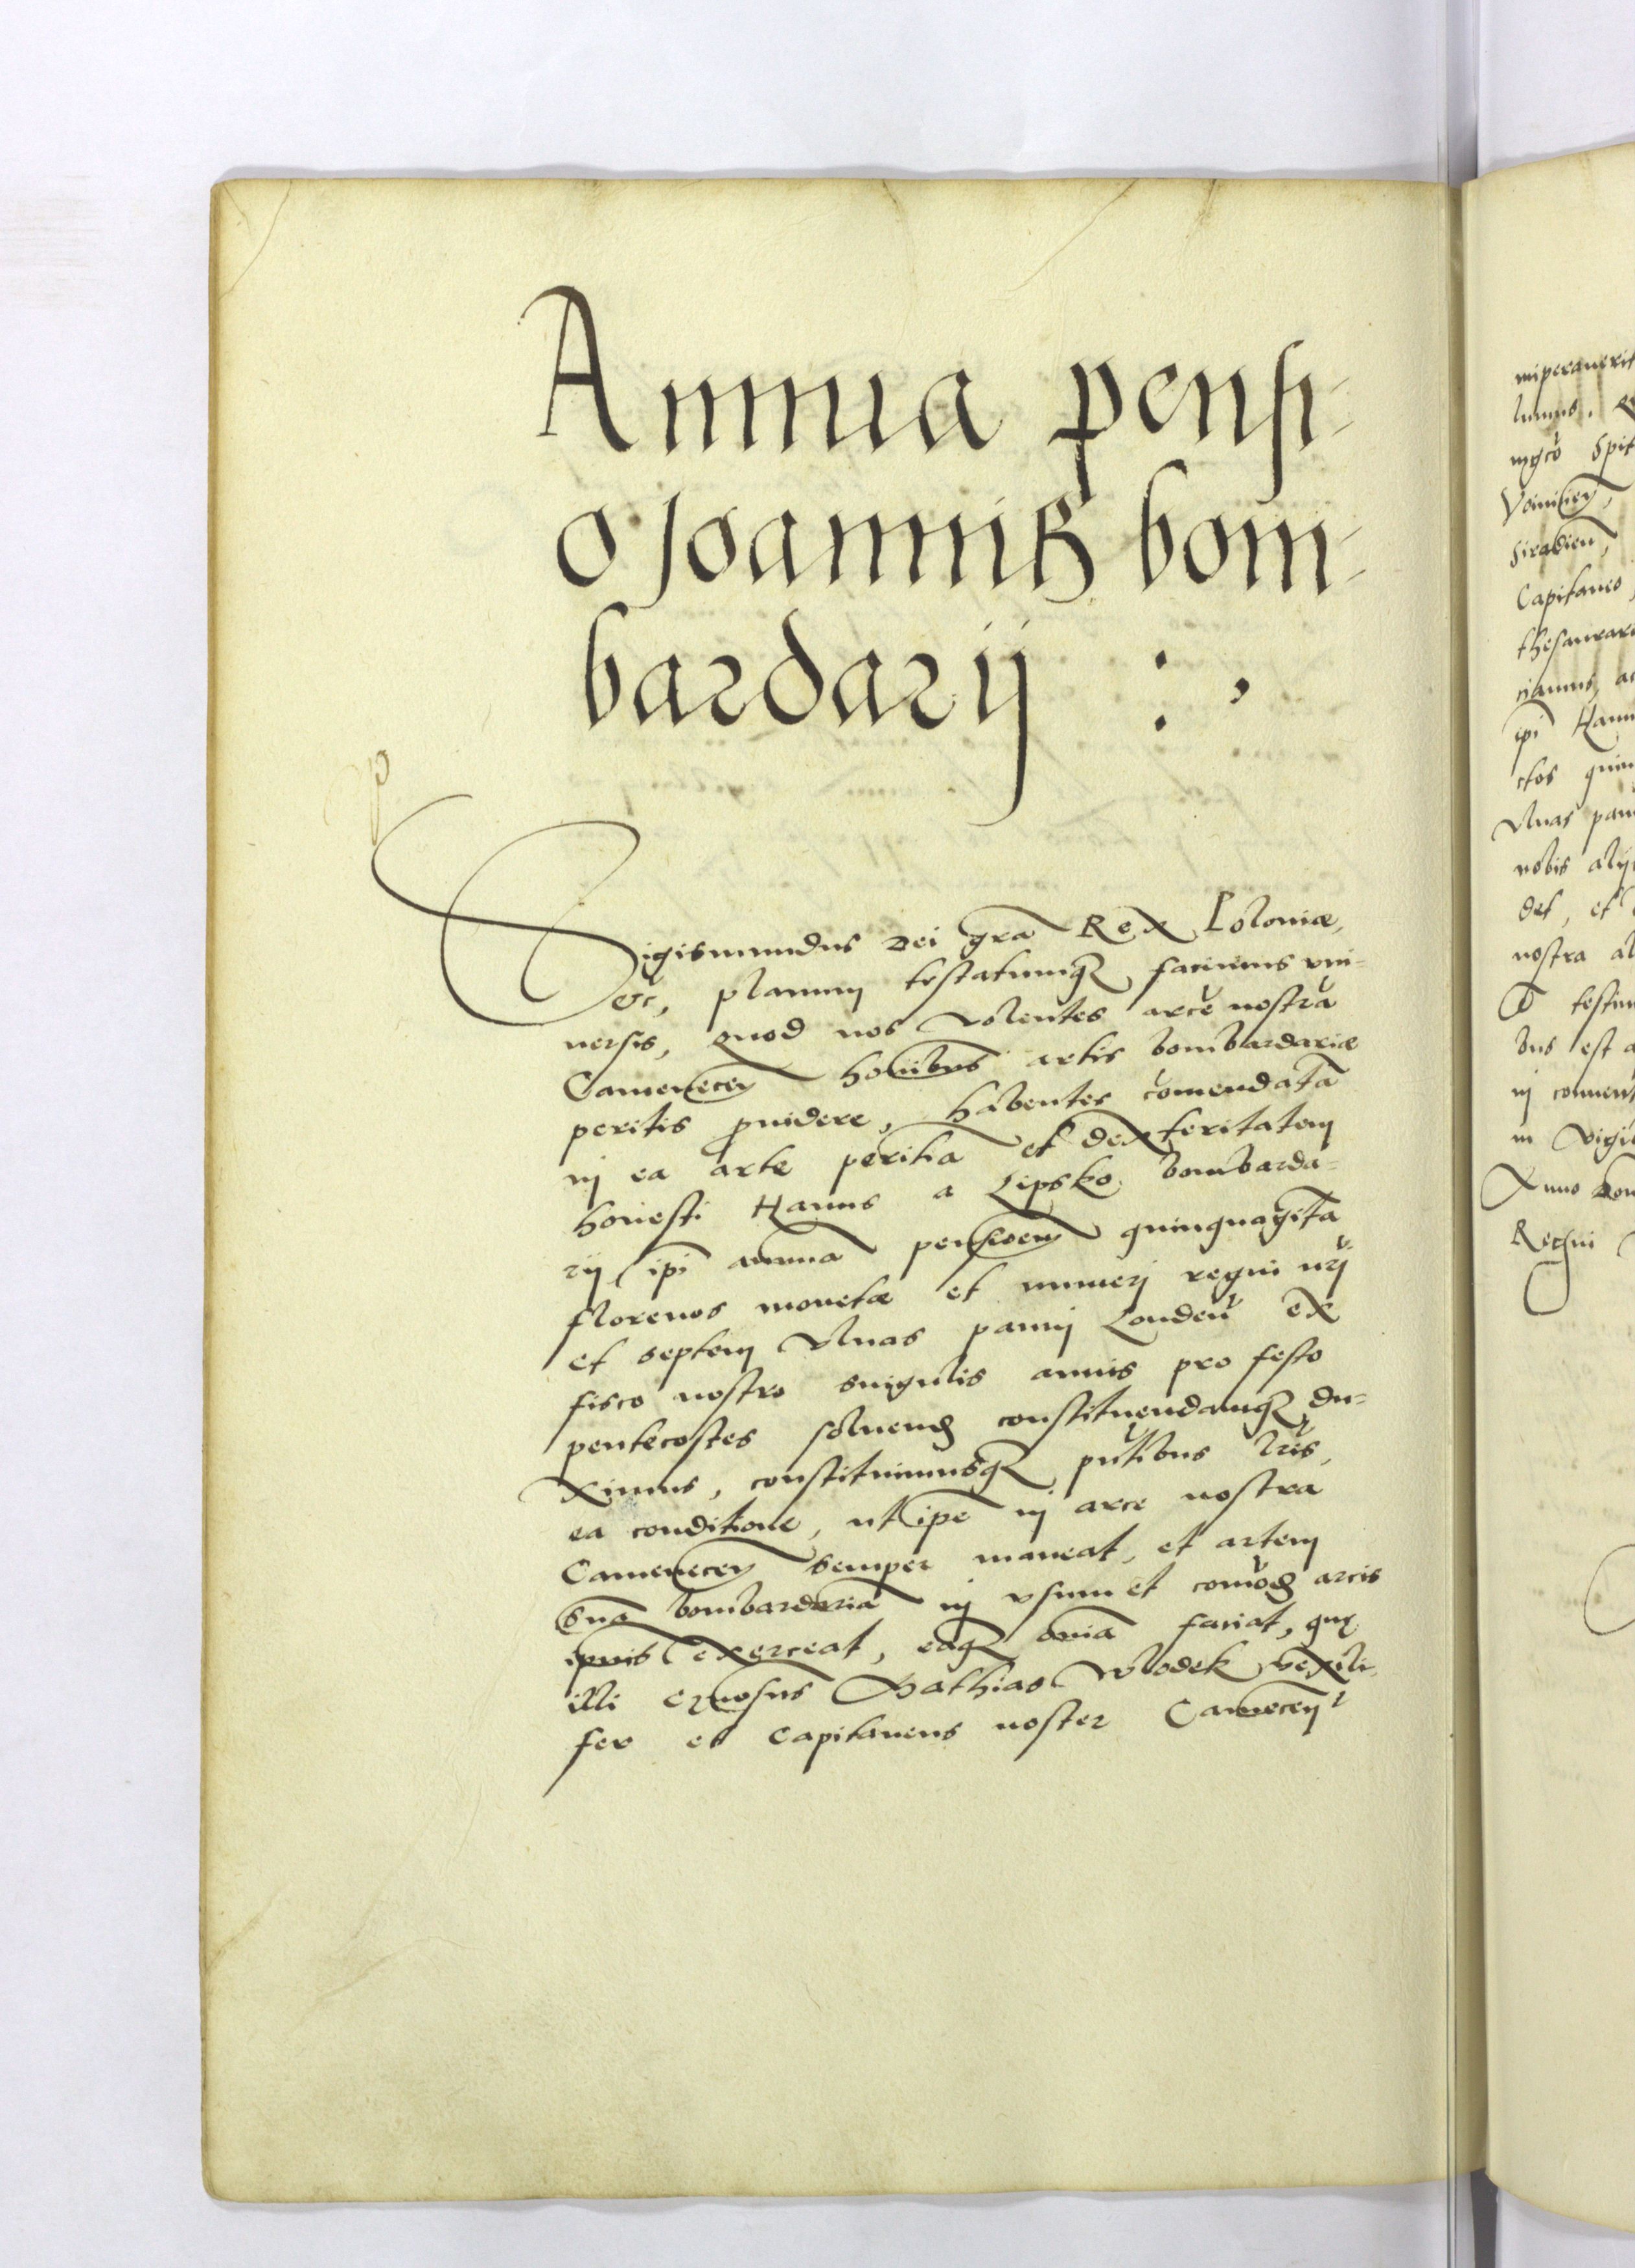 Annua pensi-
o Joannis bom-
bardarij :,
Sigismundus Dei gra Rex Poloniæ,
etc, planum testatumq facimus vni-
uersis, quod nos volentes arce nostra
Camenecen hoibus artis bombardariæ
peritis puidere, habentes comendata
in ea arte peritia et dexteritatem
honesti Hanus a Lipsko bombarda-
rij ipi annua pensioem quinquaginta
florenos monetæ et numerj regni nrj
et septem vlnas pannj Londen ex
fisco nostro singulis annis pro festo
pentecostes soluend constituendamq du-
ximus, constituimusq pntibus lris,
ea conditione, ut ipe in arce nostra
Camenecen semper maneat, et artem
sua bombardaria in vsum et comod arcis
ipius exerceat, eaq omia faciat, quę
illi gnosus Mathias Wlodek vexili-
fer et Capitaneus noster Camecen
imperauerit
mgco
Siradien,
Capitaneo,
thesaurar
ipi Hanu
ctos quin
vlnas pan
nobis alij
det, et
nostra al
testim
bus est a
in conuent
in vigil
Anno Dom
Regni